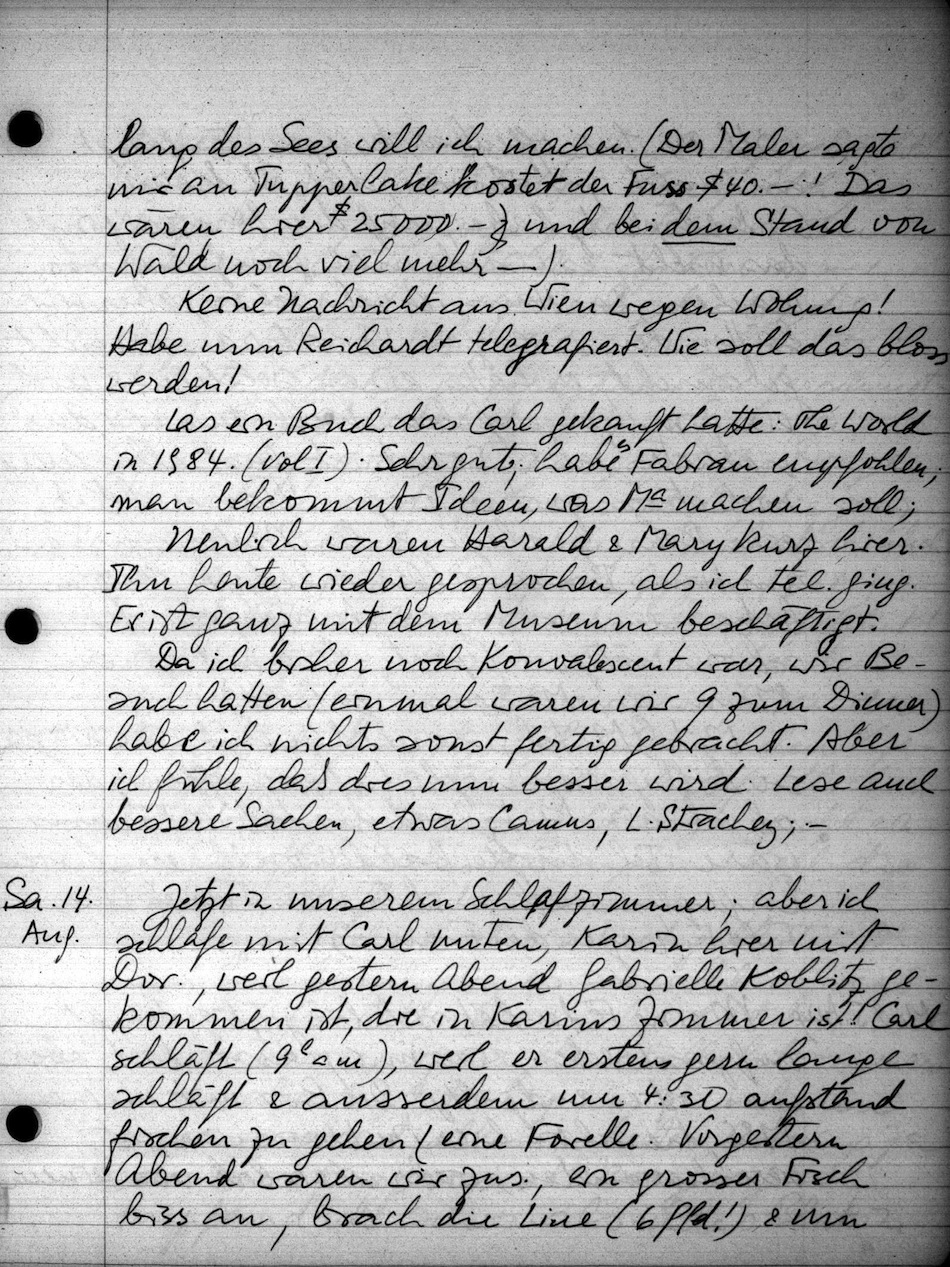 lang des Sees will ich machen. (Der Maler sagte
mir an Tupper Lake kostet der Fuss $40.—! Das
wären hier $25000.—, und bei dem Stand von
Wald noch viel mehr —).
Keine Nachricht aus Wien wegen Wohung!
Habe nun Reichardt telegrafiert. Wie soll das bloss
werden!
Las ein Buch das Carl gekauft hatte: The World
in 1984. (Vol I). Sehr gut; habe's Fabian empfohlen;
man bekommt Ideen, was Ma machen soll;
Neulich waren Harald & Mary Kurz hier.
Ihn heute wieder gesprochen, als ich tel. ging.
Er ist ganz mit dem Museum beschäftigt.
Da ich bisher noch Konvalescent war, wir Be-
such hatten (einmal waren wir 9 zum Dinner)
habe ich nichts sonst fertig gebracht. Aber
ich fühle, daß dies nun besser wird. Lese auch
bessere Sachen, etwas Camus, L. Strachey; –
Sa. 14. Aug.
Jetzt in unserem Schlafzimmer; aber ich
schlafe mit Carl unten, Karin hier mit
Dor., weil gestern Abend Gabrielle Koblitz ge-
kommen ist, die in Karins Zimmer ist! Carl
schläft (9e am), weil er erstens gern lange
schläft & ausserdem um 4:30 aufstand
fischen zu gehen (eine Forelle. Vorgestern
Abend waren wir zus., ein grosser Fisch
biss an, brach die Line (6 Pfd!) & um